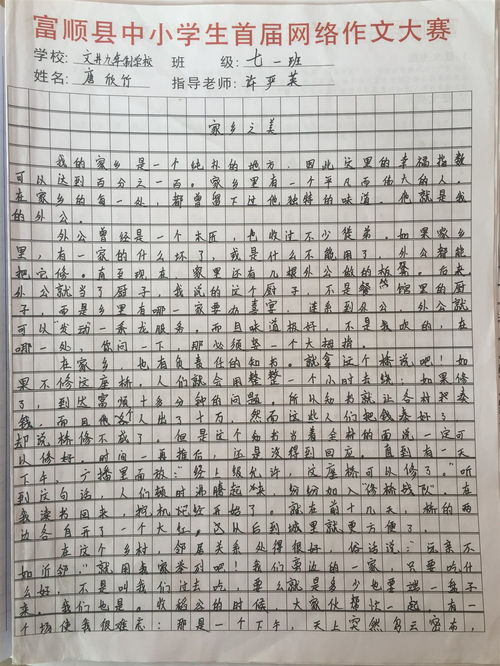 富顺县中小学生首届网络作文大赛
学校:文井九年制学校 班 级:七一班
姓名:唐欣竹 指导老师:许尹英
家乡之美
我的家乡是一个纯朴的地方,因此这里的幸福指数
可以达到百分之一百。家乡里有一个平凡而伟大的人,
在家乡的每一处,都曾留下过他独特的味道。他就是我
的外公。
外公曾经是一个木匠,也收过不少徒弟。如果家乡
里,有一家的什么坏了,或是什么不能用了,外公都能
把它修。直至现在,家里还有几根外公做的板凳。后来
外公就当了厨子,我说的这个厨子,不是餐馆里的厨
子,而是乡里有哪一家要办喜宴,连系到外公,外公就
可以发动一条龙服务。而且味道极好,不是我吹的,在
哪一处,你问一下,那必须竖一个大拇指。
在家乡,也有负责任的知书。就拿这个桥说吧!如
果不修这座桥。人们就会用整整一个小时去绕;如果修
了,到达富顺十多分钟的问题。所以知书就让各村把凑
钱,而且他个人出了十万,然而这些人们把钱凑好了
却说桥修不成了。但是这个知书当着全村的面说一定可
以修好。时间一再推后,还是没得到回应。直到有一天
下午,广播里面放:“经上级允许,这座桥可以修了。”听
到这句话,人们顿时沸腾起来,纷纷加入“修桥战队”。在
我读书回来,挖机已经开始了。就在前十几天,桥的两
边各自开了一个大红。这从后到城里就更方便了。
在这个乡村,邻居关系处得很好,俗话说:“远亲不
如近邻。”就用我家举列吧!我们旁边的一家,只要吃什
么好,不是叫我们过去吃,要么就是多少也要端一盘子
来。我们也是。收稻谷的时候,大家伙帮忙一起,有一
个场使我很难忘:那是一个下午,天上突然多云密布,